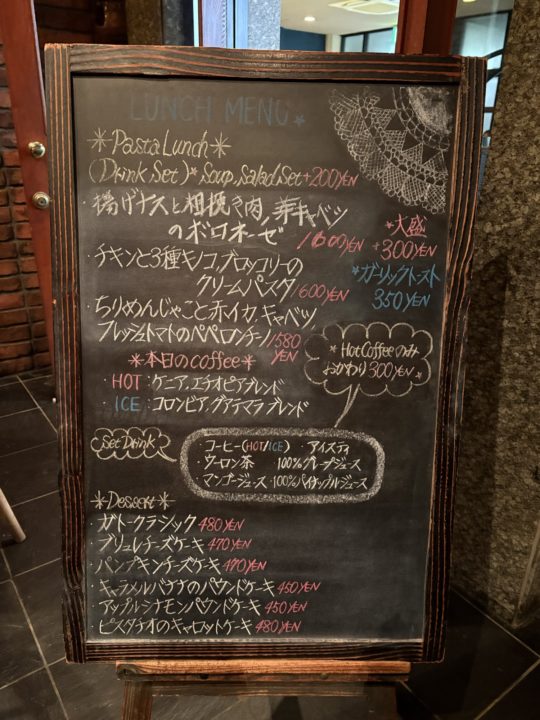 LUNCH MENU
Pasta Lunch
(Drink Set) * Soup, Salad, Set +200YEN
・揚げナスと粗挽き肉、春キャベツ
のボロネーゼ
1600YEN
*大盛
+300YEN
・チキンと3種キノコ、ブロッコリーの
クリームパスタ 1600YEN
*ガーリックトースト
350YEN
・ちりめんじゃこと赤イカ、キャベツ、
フレッシュトマトのペペロンチーノ 1580YEN
*本日のcoffee*
・HOT:ケニア、エチオピアブレンド
・ICE:コロンビア、グアテマラブレンド
*Hot Coffeeのみ
おかわり300YEN*
Set Drink
・コーヒー(HOT/ICE) ・アイスティ
・ウーロン茶 ・100%グレープジュース
・マンゴージュース ・100%パイナップルジュース
*Dessert*
・ガトークラシック 480YEN
・ブリュレチーズケーキ 470YEN
・パンプキンチーズケーキ 470YEN
・キャラメルバナナのパウンドケーキ 450YEN
・アップルシナモンパウンドケーキ 450YEN
・ピスタチオのキャロットケーキ 480YEN